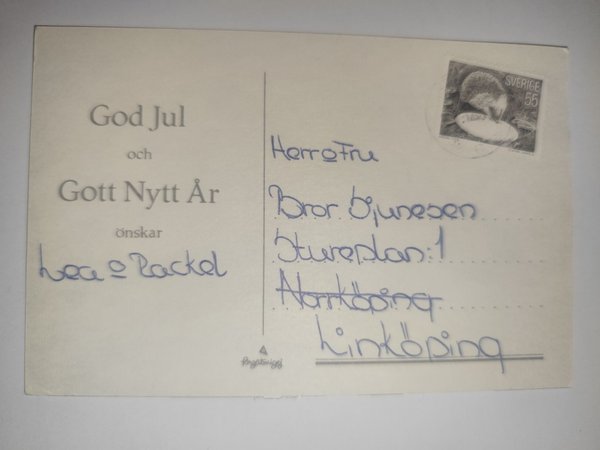 God Jul
och
Gott Nytt År
önskar
Lea o Rackel
SVERIGE
55
Herr o Fru
Bror Bjunesen
Stureplan:1
Norrköping
Linköping